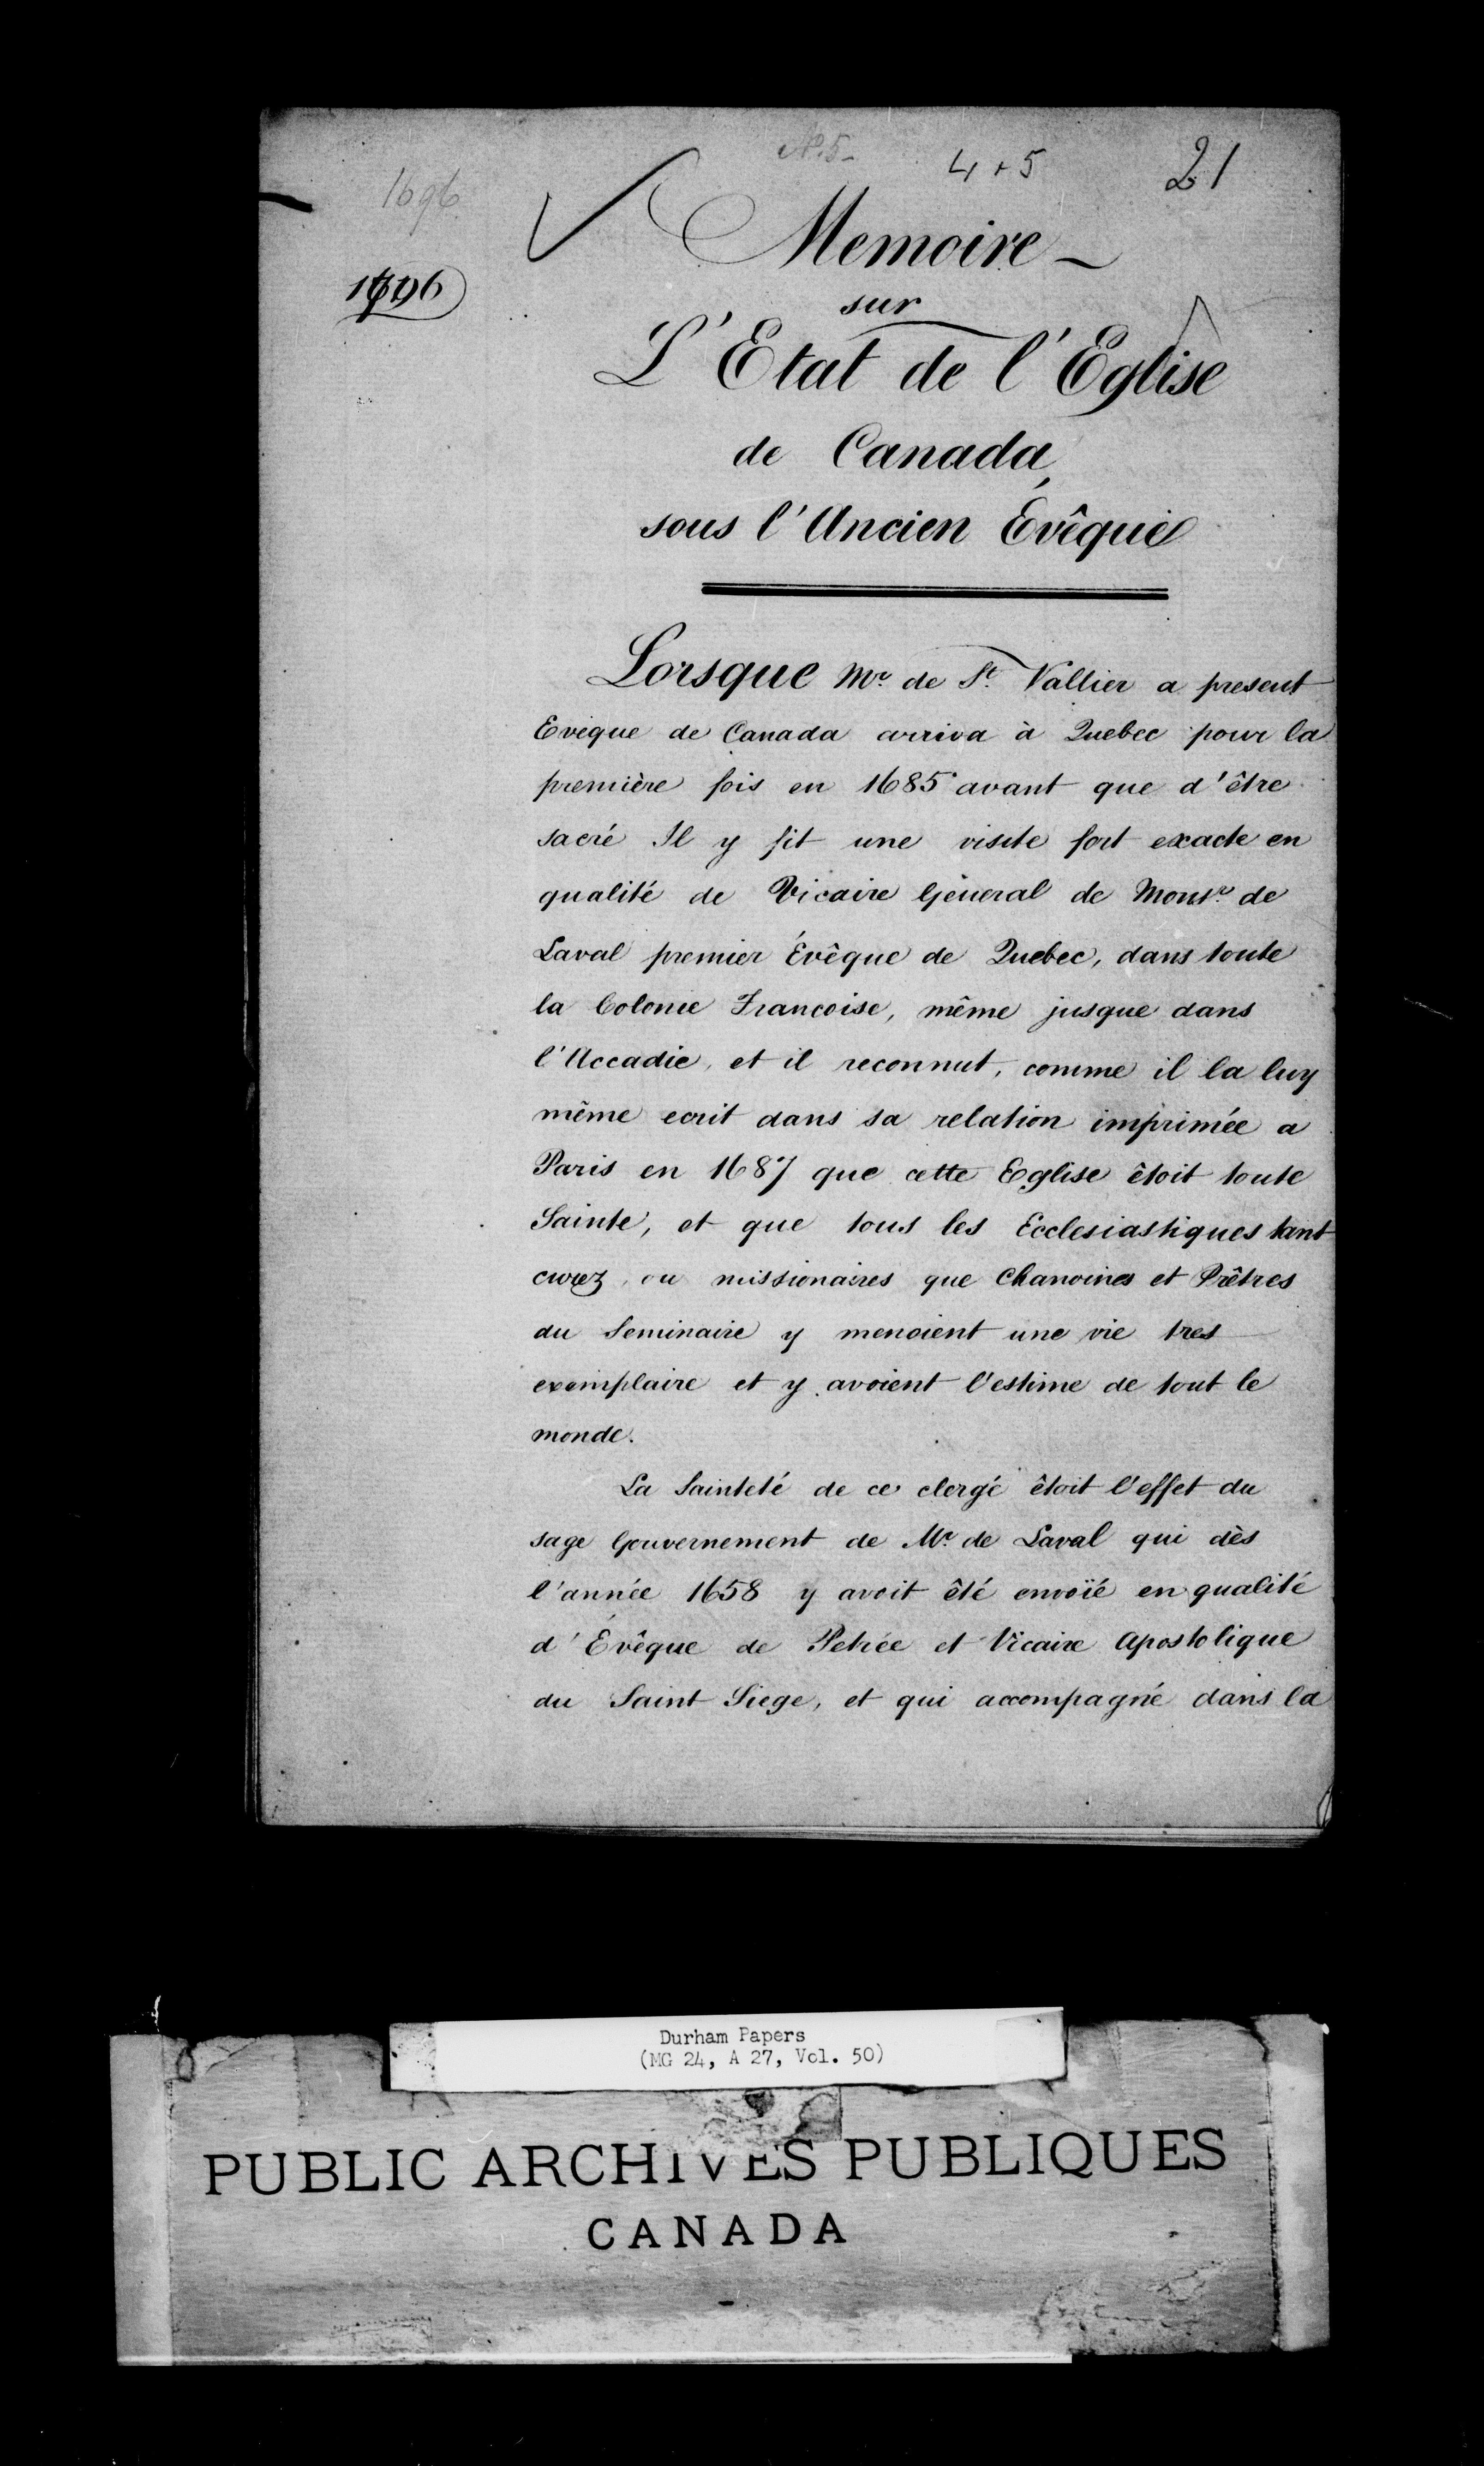 N.5-
4 + 5
21
1696
1696
Memoire
sur
L'Etat de l'Eglise
de Canada,
sous l'Ancien Évêque
Lorsque Mr. de St. Vallier a present
Eveque de Canada arriva à Quebec pour la
première fois en 1685 avant que d'être
sacré Il y fit une visite fort exacte en
qualité de Vicaire Géneral de Monsr. de
Laval premier Évêque de Quebec, dans toute
la Colonie Francoise, même jusque dans
l'Accadie, et il reconnut, comme il la luy
même ecrit dans sa relation imprimée a
Paris en 1687 que cette Eglise êtoit toute
Sainte, et que tous les Ecclesiastiques tant
curez, ou missionaires que Chanoines et Prêtres
du Seminaire y menoient une vie tres
exemplaire et y avoient l'estime de tout le
monde.
La Sainteté de ce clergé êtoit l'effet du
sage Gouvernement de Mr. de Laval qui dès
l'année 1658 y avoit êté envoïé en qualité
d'Évêque de Petrée et Vicaire Apostolique
du Saint Siege, et qui accompagné dans la
Durham Papers
(MG 24, A 27, Vol. 50)
PUBLIC ARCHIVES PUBLIQUES
CANADA